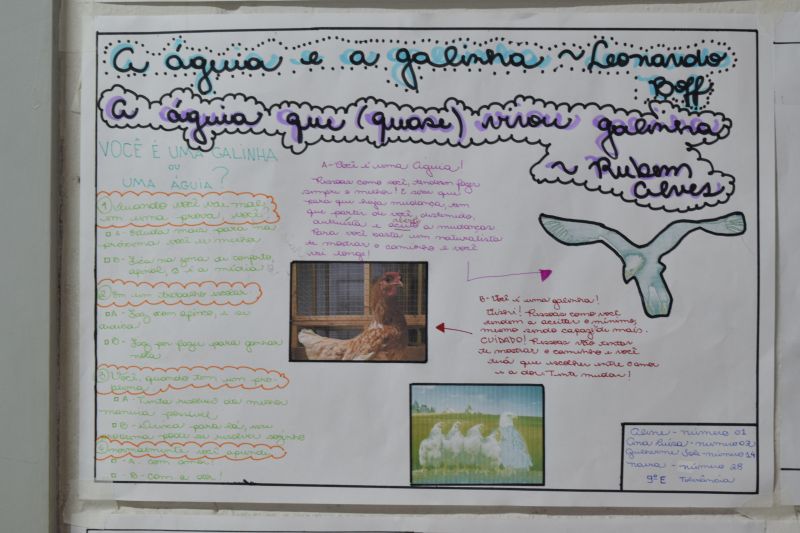 A águia e a galinha ~ Leonardo
Boff
A águia que (quase) virou galinha
~ Rubem
Alves
VOCÊ É UMA GALINHA
OU
UMA ÁGUIA?
1 Quando você vai mal
em uma prova, você?
A- Estuda mais para na
próxima você ir melhor
B- Fica na zona de conforto,
afinal, é a média!
2 Em um trabalho escolar
A- Faz com afinco, e se
dedica
B- Faz por fazer para ganhar
nota
3 Você, quando tem um pro
blema
A- Tenta resolver da melhor
maneira possível
B- Nunca para lá, seu
problema pode se resolver sozinho
4 Normalmente você aprende
A- com amor!
B- com a dor!
A- Você é uma Águia!
Pessoas como você, tendem fazer
sempre o melhor! E sabe que
para que haja mudança, tem
que partir de você,
e aceita a mudança.
Para você basta um naturalista
te mostrar o caminho e você
vai longe!
B- Você é uma galinha!
Pessoas como você
tendem a aceitar o mínimo,
mesmo sendo capaz de mais.
CUIDADO! Pessoas vão tentar
te mostrar o caminho e você
terá que escolher entre o amor
e a dor. Tente mudar!
Aline - número 01
Ana Luísa - número 02
Guilherme - número 14
número 28
9º E Tolerância